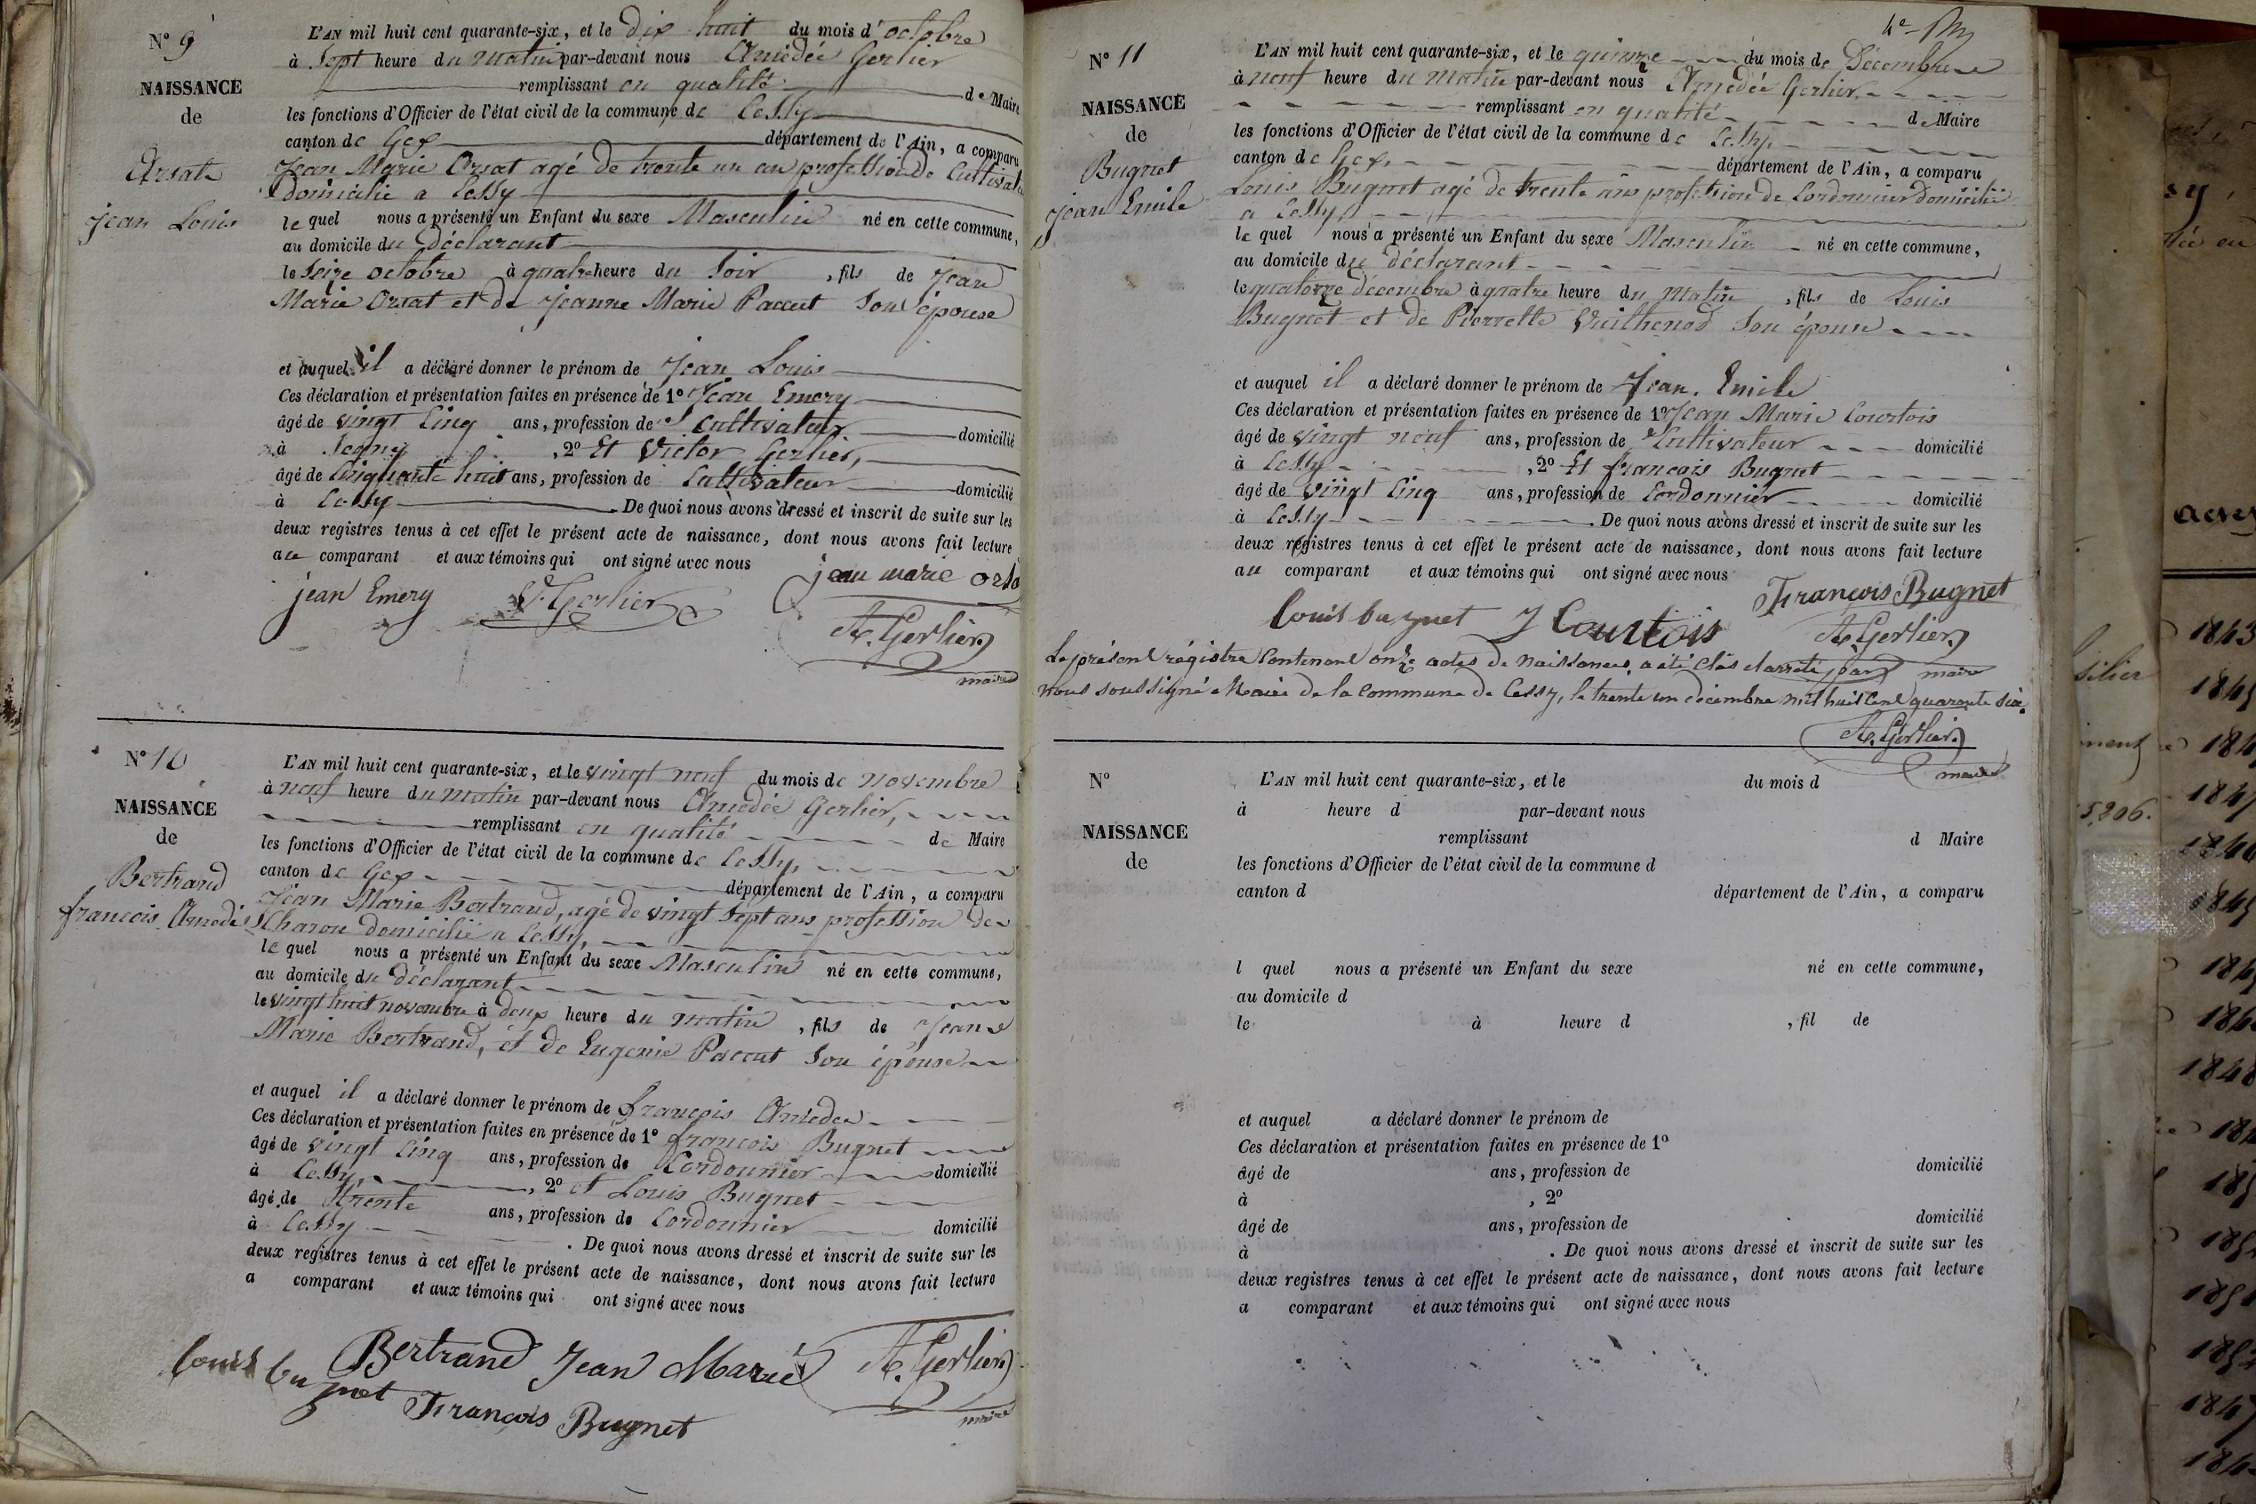 N° 9
NAISSANCE
de
Orsat
Jean Louis
L'AN mil huit cent quarante-six, et le dix huit du mois d'octobre
à sept heure du matin par-devant nous Amédée Gerlier
remplissant en qualité de Maire
les fonctions d'Officier de l'état civil de la commune de Cessy
canton de Gex département de l'Ain, a comparu
Jean Marie Orsat agé de trente un an profession de Cultivateur
domicilié a Cessy
le quel nous a présenté un Enfant du sexe Masculin né en cette commune,
au domicile du déclarant
le seize octobre à quatre heure du soir, fils de Jean
Marie Orsat et de Jeanne Marie Paccut son épouse
et auquel il a déclaré donner le prénom de Jean Louis
Ces déclaration et présentation faites en présence de 1° Jean Emery
âgé de vingt cinq ans, profession de Cultivateur domicilié
à Segny, 2° Et Victor Gerlier,
âgé de cinquante huit ans, profession de Cultivateur domicilié
à Cessy. De quoi nous avons dressé et inscrit de suite sur les
deux registres tenus à cet effet le présent acte de naissance, dont nous avons fait lecture
au comparant et aux témoins qui ont signé avec nous
jean Emery V. Gerlier jean marie orsa
A. Gerlier
maire
N° 10
NAISSANCE
de
Bertrand
françois Amédé
L'AN mil huit cent quarante-six, et le vingt neuf du mois de novembre
à neuf heure du matin par-devant nous Amédée Gerlier,
remplissant en qualité de Maire
les fonctions d'Officier de l'état civil de la commune de Cessy,
canton de Gex département de l'Ain, a comparu
Jean Marie Bertrand, agé de vingt sept ans profession de
Charon domicilié a Cessy,
le quel nous a présenté un Enfant du sexe Masculin né en cette commune,
au domicile du déclarant
le vingt huit novembre à deux heure du matin, fils de Jean
Marie Bertrand, et de Eugenie Paccut son épouse
et auquel il a déclaré donner le prénom de françois Amedee
Ces déclaration et présentation faites en présence de 1° françois Bugnet
âgé de vingt cinq ans, profession de Cordonnier domicilié
à Cessy, 2° et Louis Bugnet
âgé de trente ans, profession de Cordonnier domicilié
à Cessy. De quoi nous avons dressé et inscrit de suite sur les
deux registres tenus à cet effet le présent acte de naissance, dont nous avons fait lecture
a comparant et aux témoins qui ont signé avec nous
Louis bugnet Bertrand Jean Marie A. Gerlier
François Bugnet maire
N° 11
NAISSANCE
de
Bugnet
Jean Emile
L'AN mil huit cent quarante-six, et le quinze du mois de Décembre
à neuf heure du matin par-devant nous Amédée Gerlier,
remplissant en qualité de Maire
les fonctions d'Officier de l'état civil de la commune de Cessy,
canton de Gex, département de l'Ain, a comparu
Louis Bugnet agé de trente ans profession de Cordonnier domicilié
a Cessy,
le quel nous a présenté un Enfant du sexe Masculin né en cette commune,
au domicile du déclarant
le quatorze décembre à quatre heure du matin, fils de Louis
Bugnet et de Pierrette Vuithenod son épouse
et auquel il a déclaré donner le prénom de Jean. Emile
Ces déclaration et présentation faites en présence de 1° Jean Marie Courtois
âgé de vingt neuf ans, profession de Cultivateur domicilié
à Cessy, 2° Et françois Bugnet
âgé de vingt cinq ans, profession de Cordonnier domicilié
à Cessy. De quoi nous avons dressé et inscrit de suite sur les
deux registres tenus à cet effet le présent acte de naissance, dont nous avons fait lecture
au comparant et aux témoins qui ont signé avec nous
François Bugnet
Louis bugnet J Courtois A. Gerlier
maire
Le présent régistre contenant onze actes de naissances, a été clos et arrêté par
nous soussigné Maire de la commune de Cessy, le trente un décembre mil huit cent quarante six.
A. Gerlier
maire
N°
NAISSANCE
de
L'AN mil huit cent quarante-six, et le du mois d
à heure d par-devant nous
remplissant d Maire
les fonctions d'Officier de l'état civil de la commune d
canton d département de l'Ain, a comparu
l quel nous a présenté un Enfant du sexe né en cette commune,
au domicile d
le à heure d , fil de
et auquel a déclaré donner le prénom de
Ces déclaration et présentation faites en présence de 1°
âgé de ans, profession de domicilié
à , 2°
âgé de ans, profession de domicilié
à . De quoi nous avons dressé et inscrit de suite sur les
deux registres tenus à cet effet le présent acte de naissance, dont nous avons fait lecture
a comparant et aux témoins qui ont signé avec nous
5,206.
1843
1847
1848